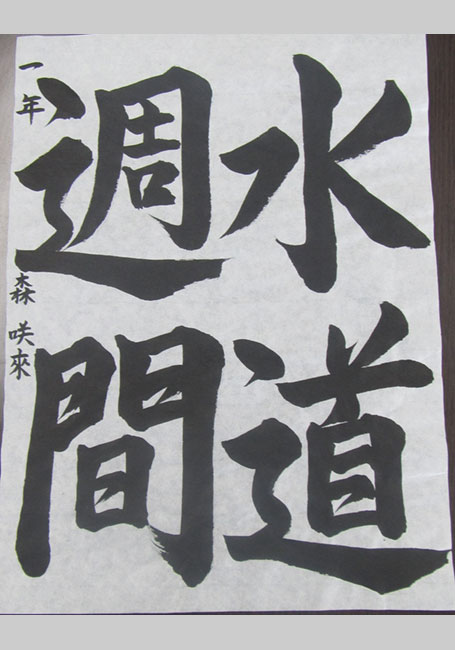 水道
週間
一年 森咲來